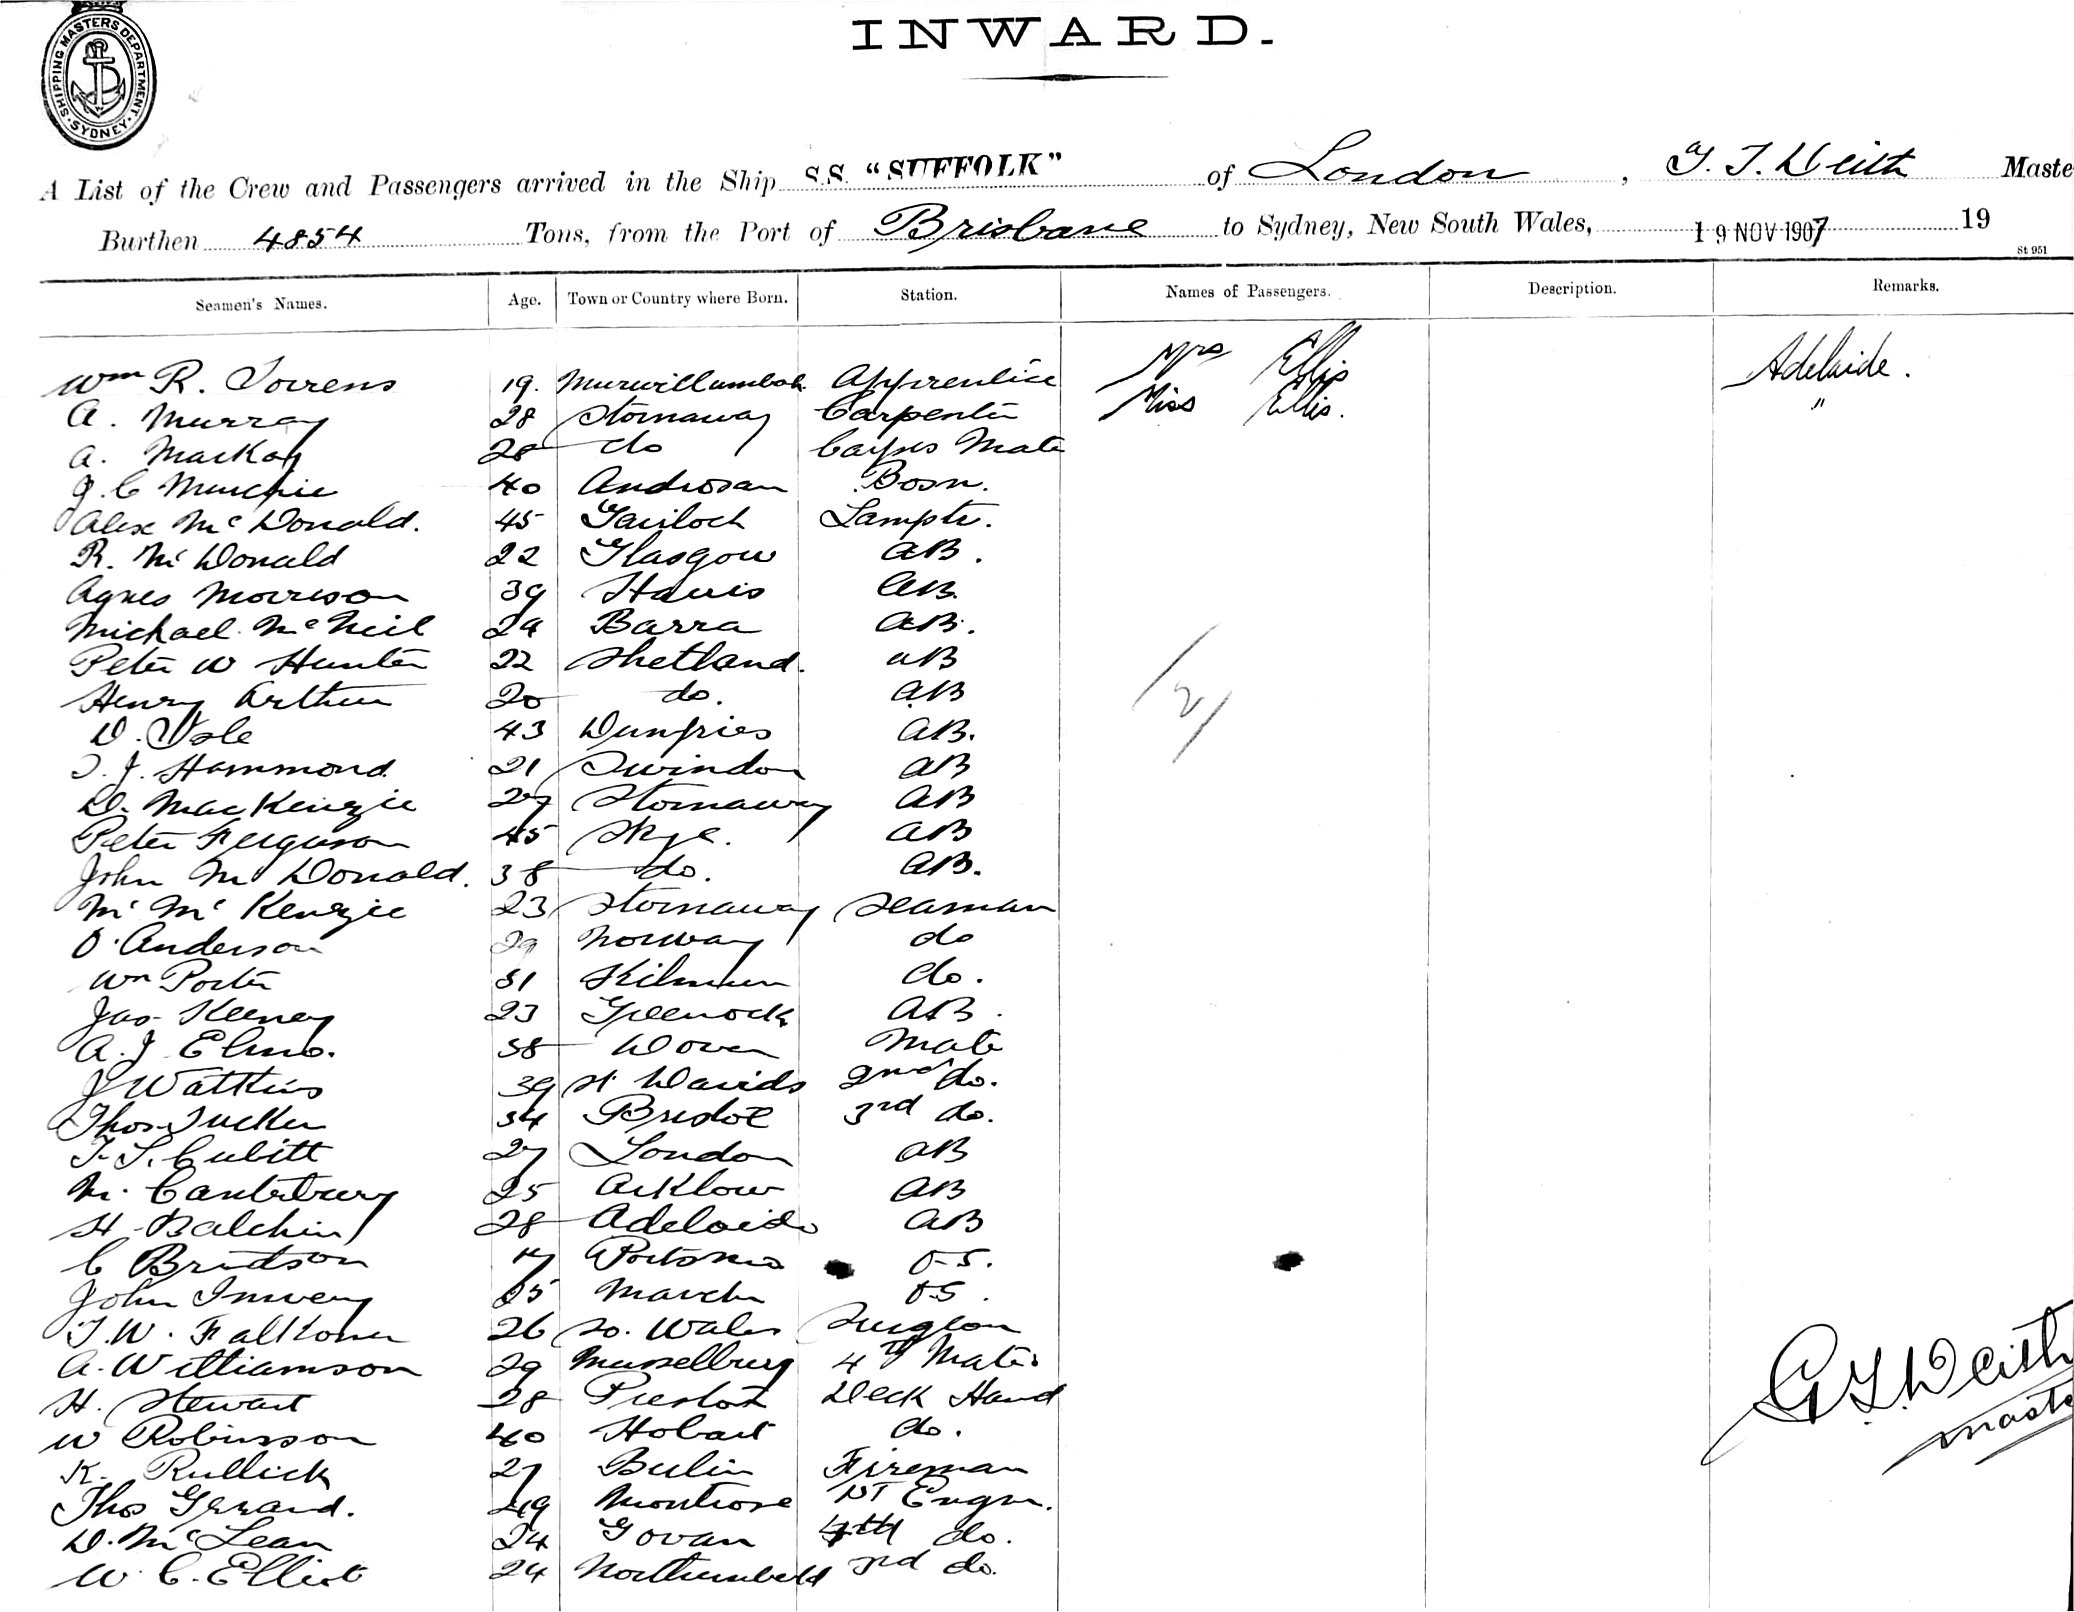 INWARD.
SHIPPING MASTERS DEPARTMENT. SYDNEY
A List of the Crew and Passengers arrived in the Ship S.S. "SUFFOLK" of London, G. T. Deith Maste
Burthen 4854 Tons, from the Port of Brisbane to Sydney, New South Wales, 19 NOV 1907 19
St 951
Seamen's Names. Age. Town or Country where Born. Station. Names of Passengers. Description. Remarks.
Wm R. Torrens 19. Murwillumbah Apprentice Mrs Ellis Adelaide.
A. Murray 28 Stornaway Carpenter Miss Ellis. "
A. MacKay 28 do Carps Mate
J. C Murchie 40 Androsan Bosn.
Alex Mc Donald. 45 Gairloch Lamptr.
R. Mc Donald 22 Glasgow AB.
Agnes Morrison 39 Harris AB.
Michael Mc Neil 29 Barra AB.
Peter W Hunter 22 Shetland. AB
Henry Arthur 20 do. AB
D. 43 Dumfries AB.
T. J. Hammond 21 Swindon AB
D. MacKenzie 27 Stornaway AB
Peter Ferguson 45 Skye. AB
John Mc Donald. 38 do. AB.
M. Mc Kenzie 23 Stornaway Seaman
O. Anderson 29 Norway do
Wm Porter 31 Kilmun do.
Jas Keeney 23 Greenock AB.
A. J 38 Dover Mate
J Watkins 39 St Davids 2nd do.
Thos Tucker 34 Bristol 3rd do.
T. S. Cubitt 27 London AB
M. Canterbury 25 Arklow AB
H. Balchin 28 Adelaide AB
C Bridson 17 O.S.
John 25 March O.S.
T. W. Falkoner 26 So. Wales Surgeon
A. Williamson 29 Musselburg 4th Mate
H. Stewart 28 Preston Deck Hand
W Robinson 40 Hobart do.
K. Rullick 27 Berlin Fireman
Thos Gerrard. 49 Montrose 1st Engr.
D. Mc Lean 24 Govan 4th do.
W. C. Elliot 24 Northumbeld 3rd do.
12/
G T Deith
Maste